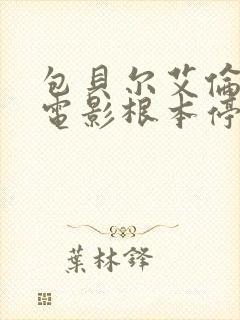 包貝尔艾倫
電影根本停
葉林鋒